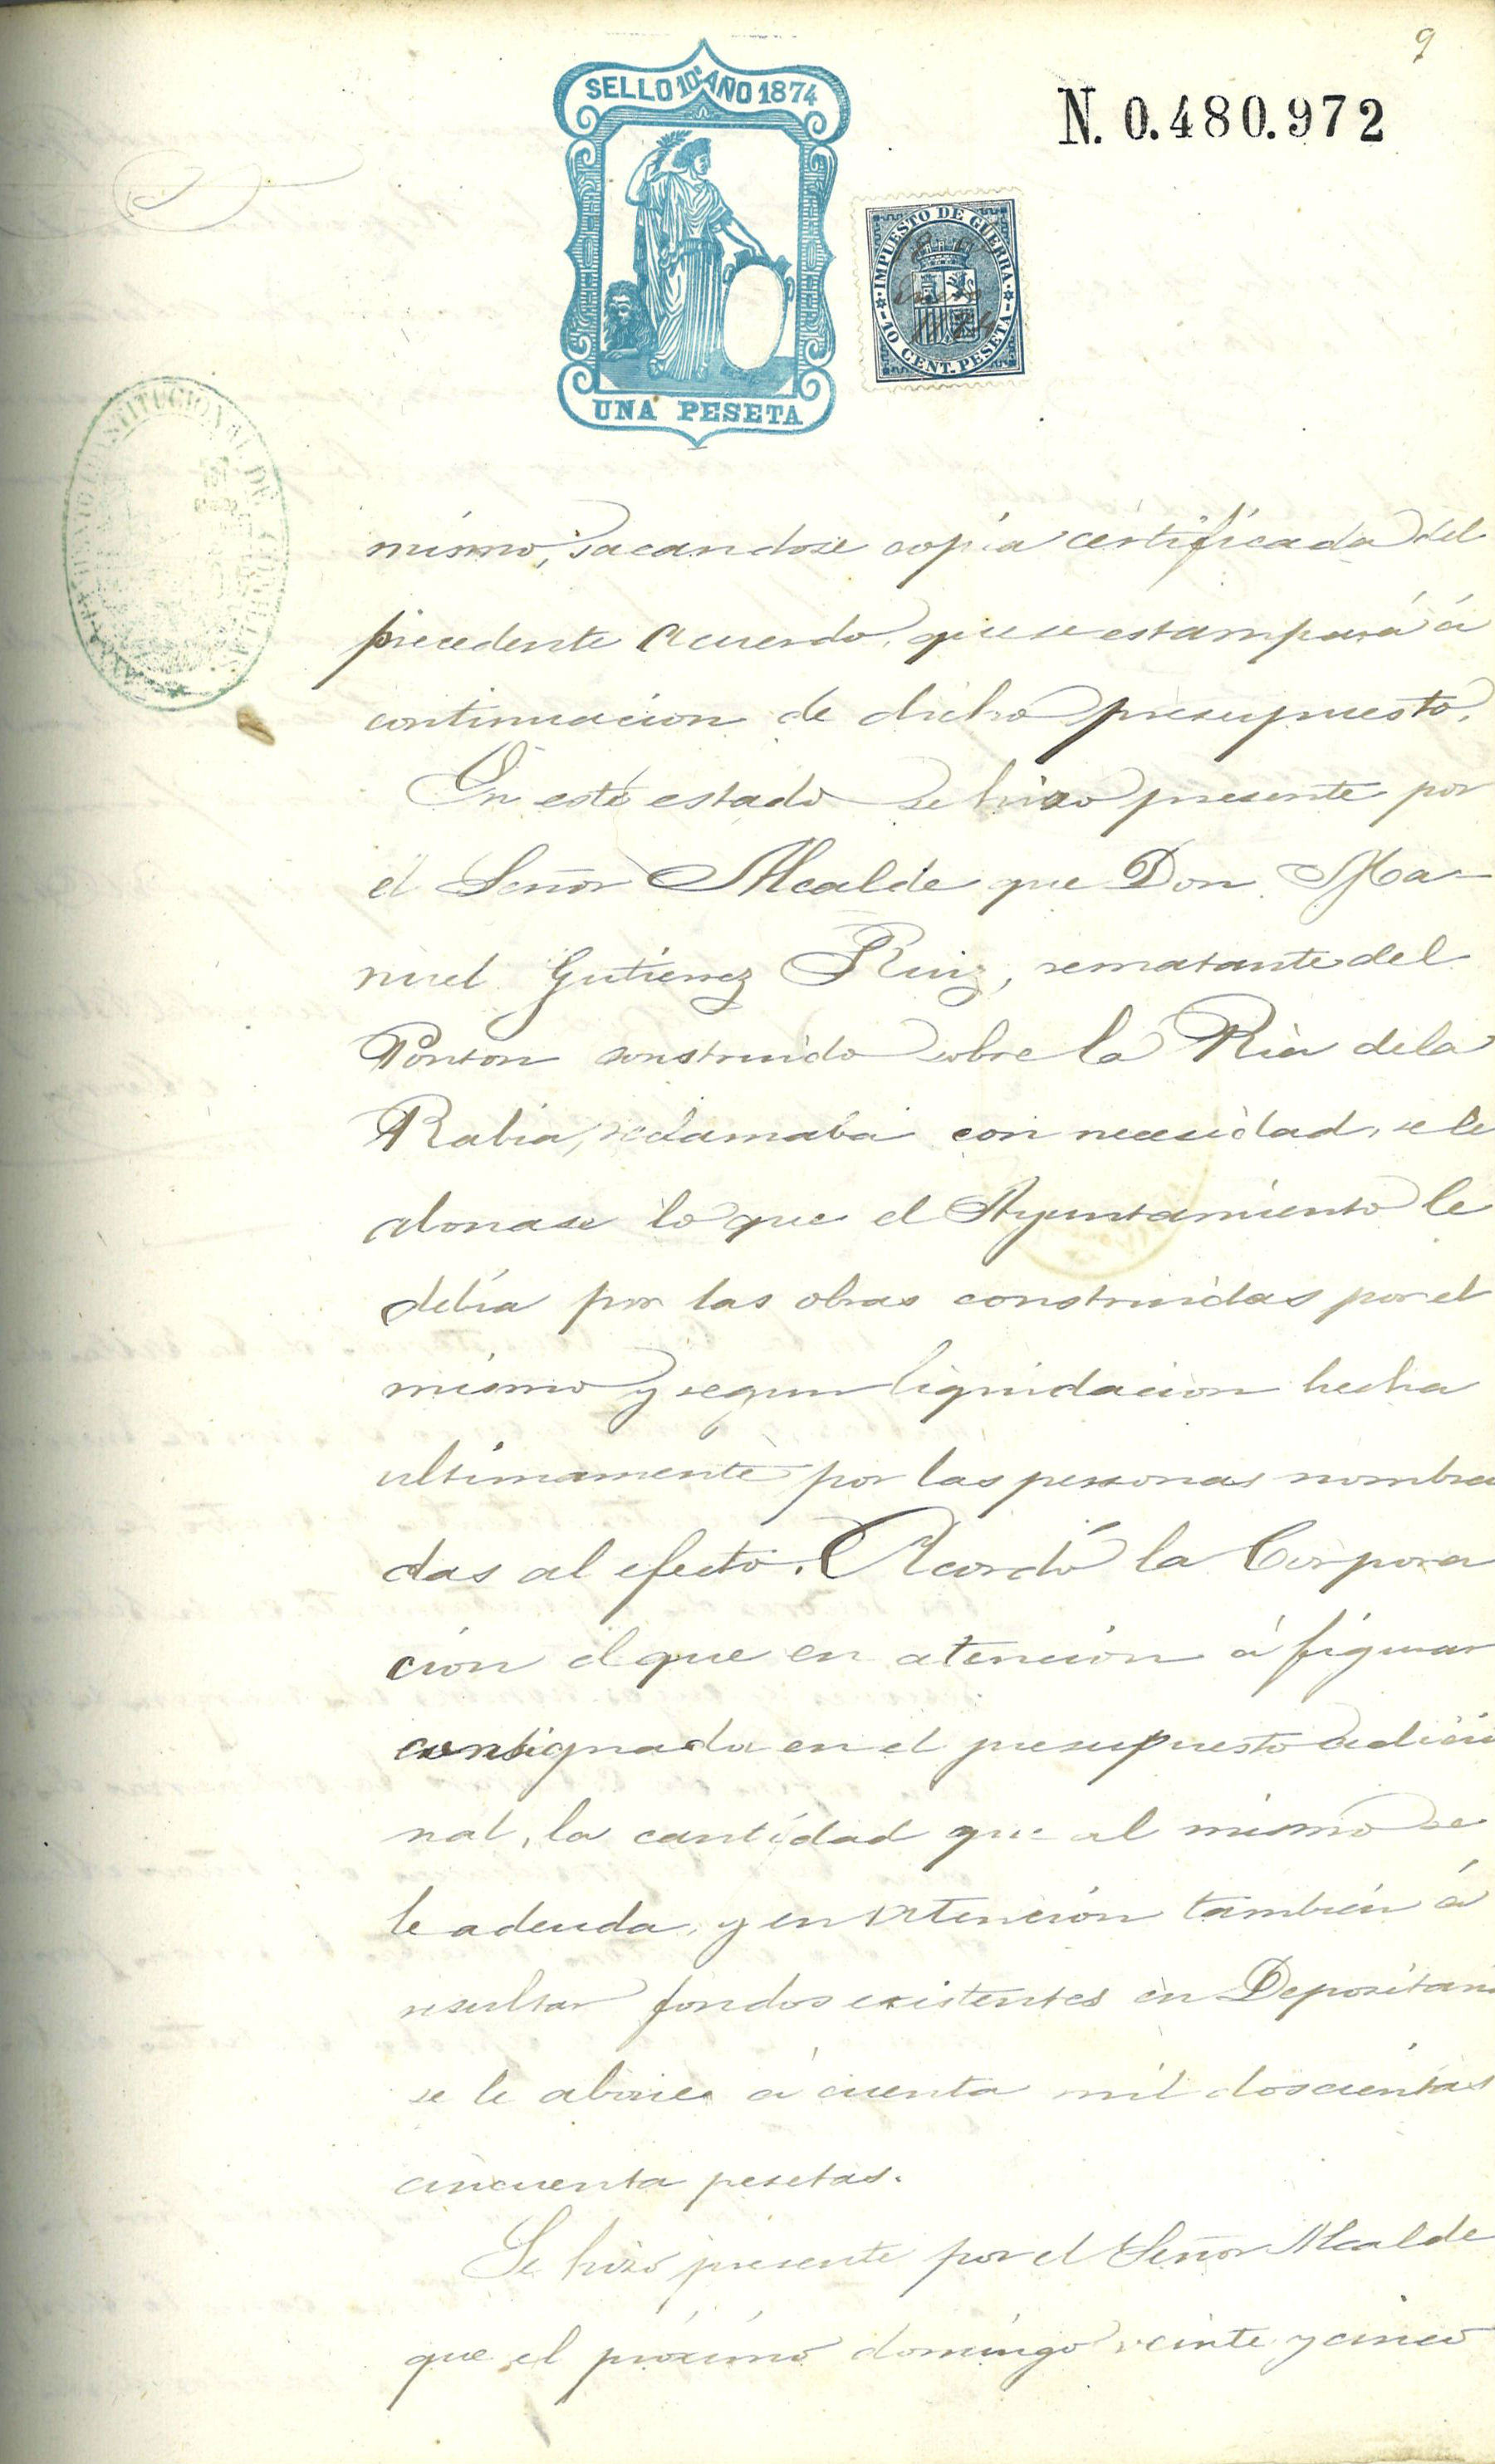 9
SELLO 10º AÑO 1874
N. 0.480.972
IMPUESTO DE GUERRA
Enero
74
10 CENT. PESETA
UNA PESETA
CONSTITUCIONAL DE
mismo, sacandose copia certificada del
precedente acuerdo, que se estampará á
continuacion de dicho presupuesto.
En este estado se hizo presente por
el Señor Alcalde que Don Ma-
nuel Gutierrez Ruiz, rematante del
Ponton construido sobre la Ria de la
Rabia, reclamaba con necesidad, se le
abonase lo que el Ayuntamiento le
debia por las obras construidas por el
mismo y segun liquidacion hecha
ultimamente por las personas nombra
das al efecto. Acordó la Corpora
cion el que en atencion á figurar
consignada en el presupuesto adicio
nal, la cantidad que al mismo se
le adeuda, y en atencion tambien á
resultar fondos existentes en Depositari
se le abone á cuenta mil doscientas
cincuenta pesetas.
Se hizo presente por el Señor Alcalde
que el próximo domingo veinte y cinco